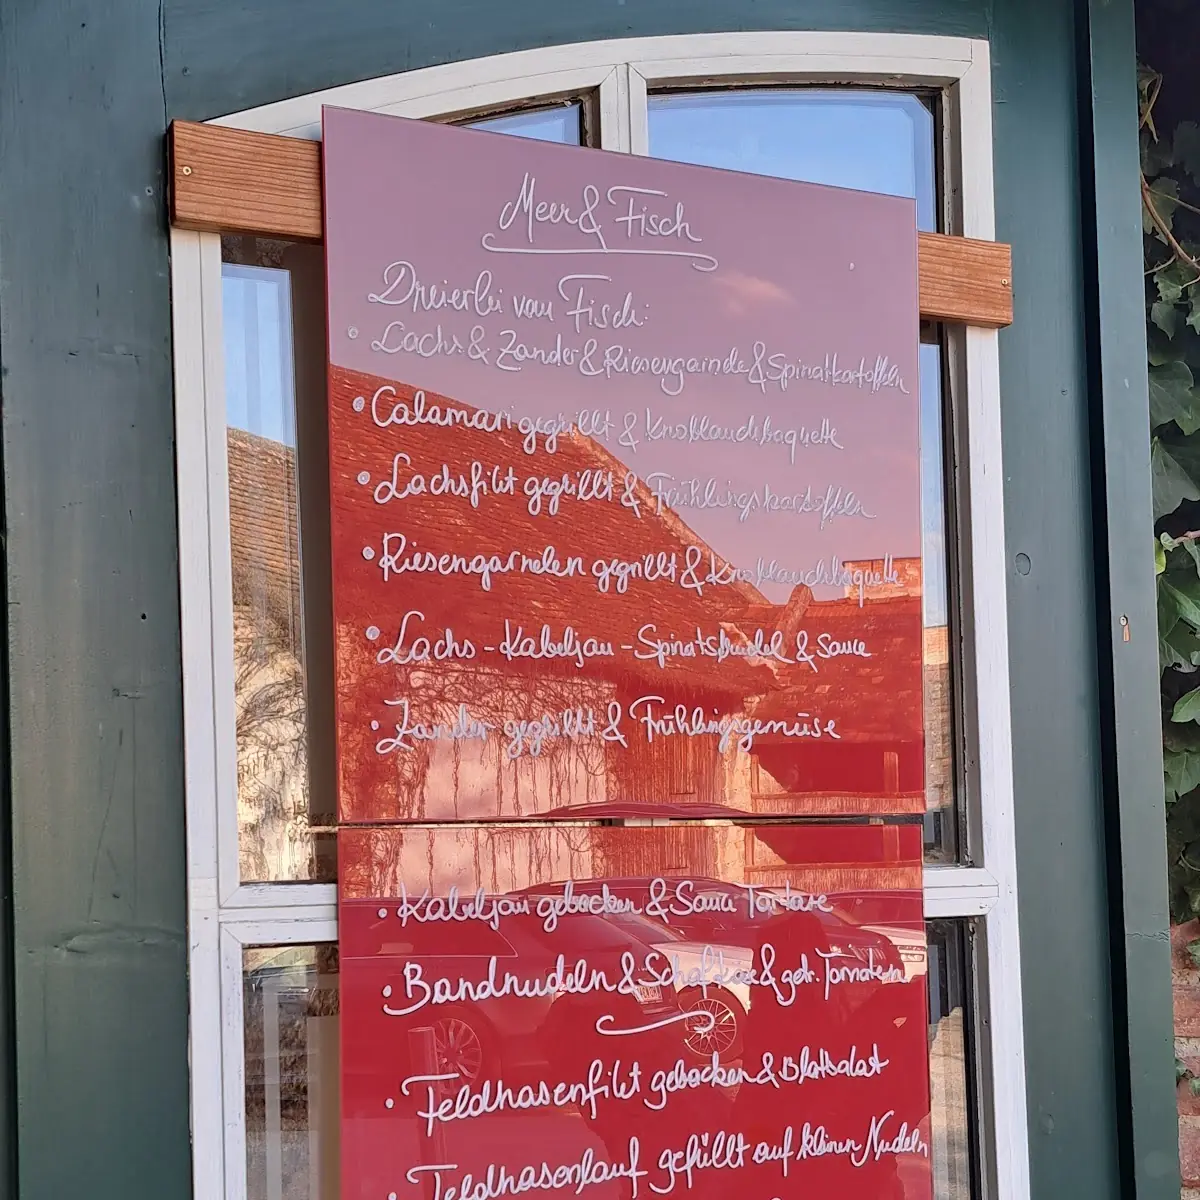 Meer & Fisch
Dreierlei vom Fisch:
• Lachs & Zander & Riesengarnele & Spinatkartoffeln
• Calamari gegrillt & Knoblauchbaguette
• Lachsfilet gegrillt & Frühlingskartoffeln
• Riesengarnelen gegrillt & Knoblauchbaguette
• Lachs-Kabeljau-Spinatstrudel & Sauce
• Zander gegrillt & Frühlingsgemüse
• Kabeljau gebacken & Sauce Tartare
• Bandnudeln & Schafkäse & getr. Tomaten
• Feldhasenfilet gebacken & Blattsalat
• Feldhasenlauf gefüllt auf kleinen Nudeln